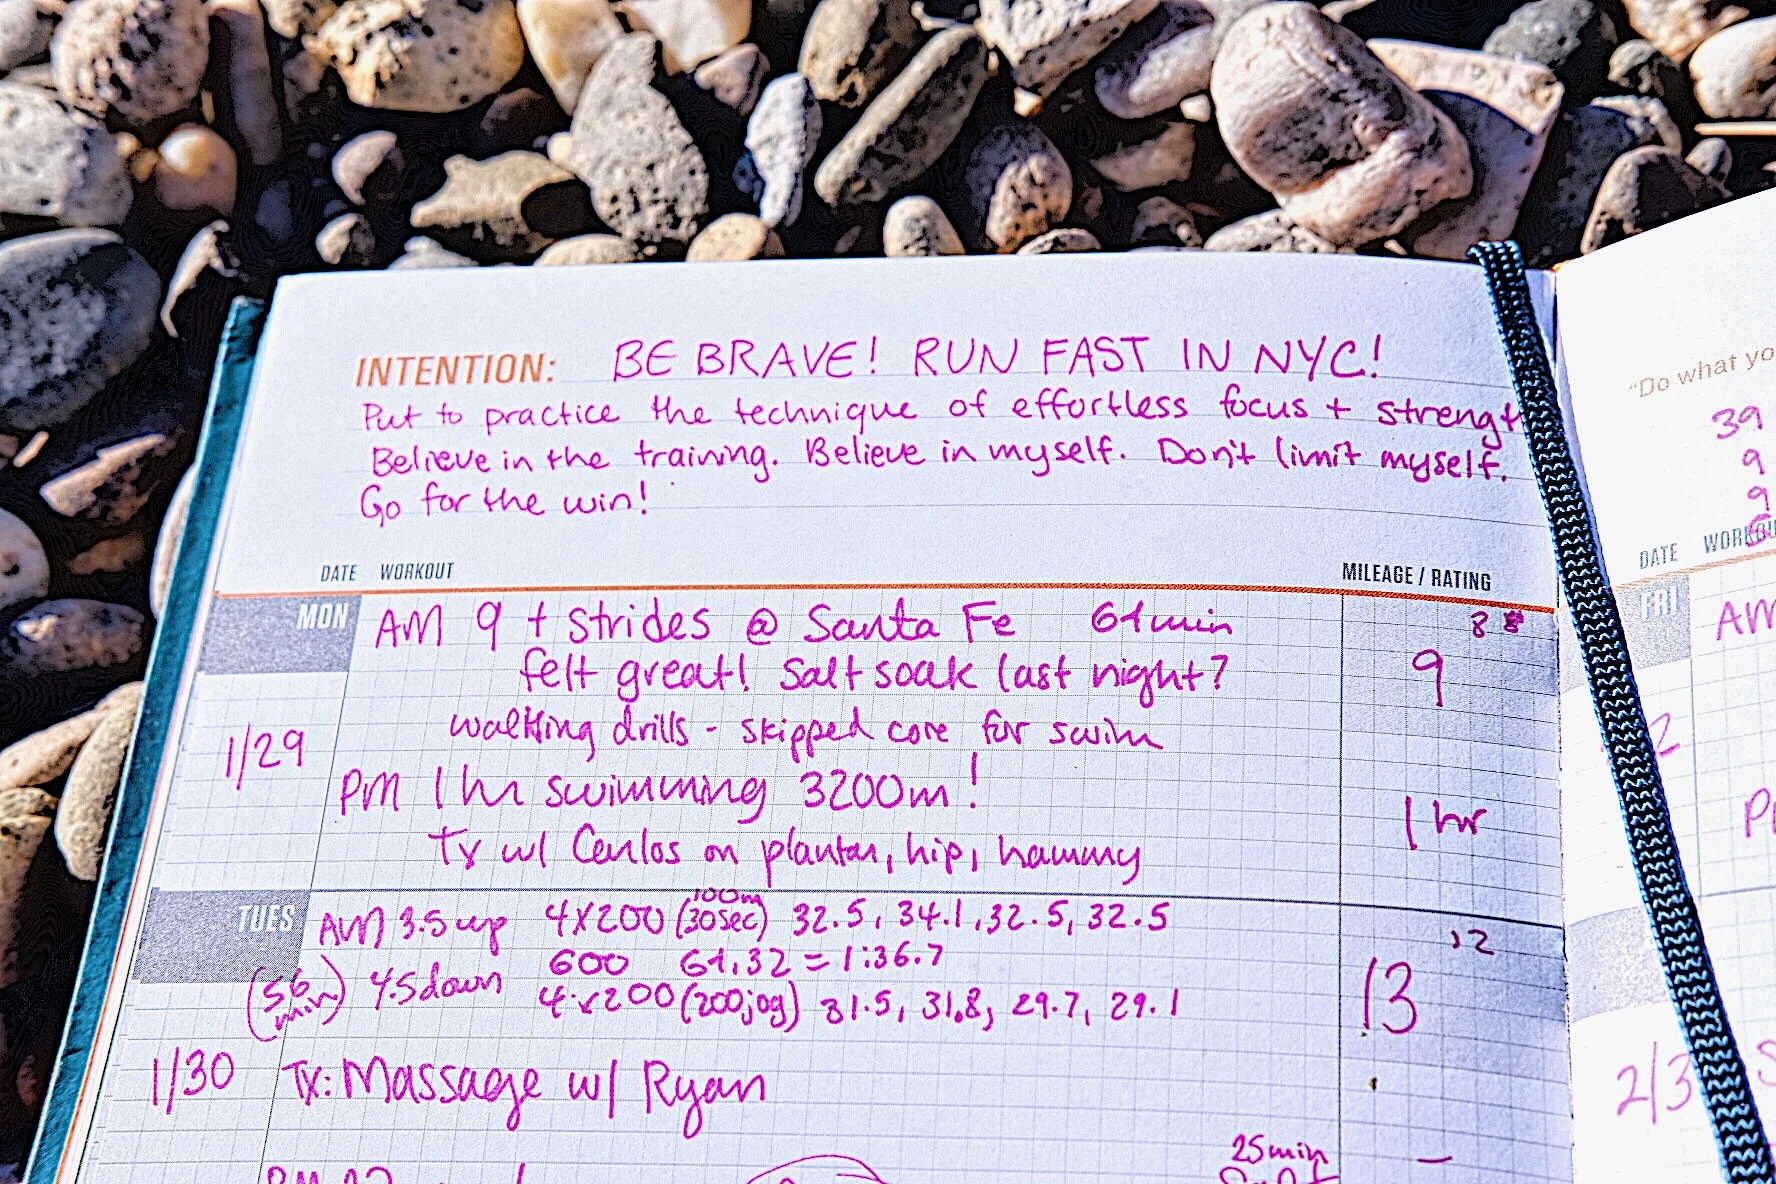 INTENTION: BE BRAVE! RUN FAST IN NYC!
Put to practice the technique of effortless focus + strengt
Believe in the training. Believe in myself. Don't limit myself.
Go for the win!
DATE WORKOUT MILEAGE / RATING
MON AM 9 + strides @ Santa Fe 61 min 8 8
felt great! Salt soak last night? 9
walking drills - skipped core for swim
1/29
PM 1 hr swimming 3200m! 1 hr
Tx w/ Carlos on plantar, hip, hammy
100m
TUES AM 3.5 up 4x200 (30sec) 32.5, 34.1, 32.5, 32.5
12
600 61, 32 = 1:36.7
(56 min) 4.5 down 13
4x200 (200jog) 31.5, 31.8, 29.7, 29.1
1/30 Tx: Massage w/ Ryan
25min
-
"Do what yo
39
9
9
6
DATE WORKOU
FRI AM
2
2/3